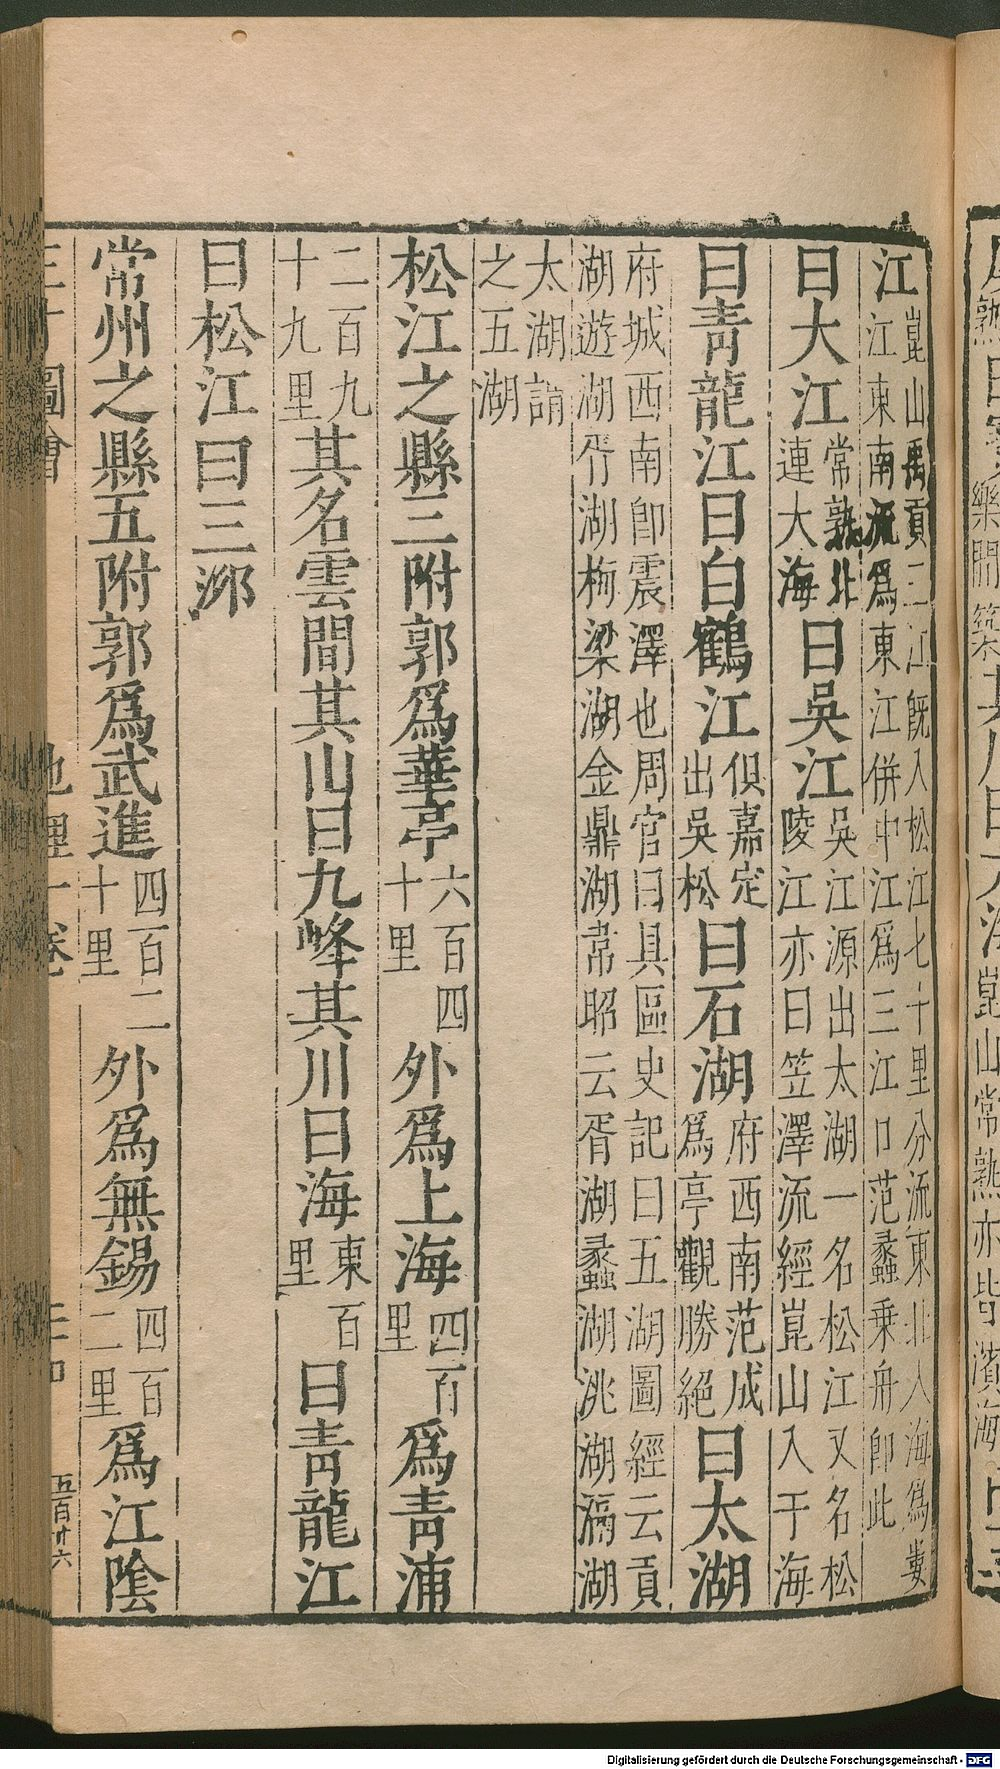 江崑山禹貢三江既入松江七十里分流東北入海爲婁
江東南流爲東江併中江爲三江口范蠡乗舟即此
曰大江常熟北連大海曰吳江吳江源出太湖一名松江又名松
陵江亦曰笠澤流經崑山入于海
曰青龍江曰白鶴江俱嘉定出吳松曰石湖府西南范成爲亭觀勝絕曰太湖
府城西南即震澤也周官曰具區史記曰五湖圖經云貢
湖遊湖胥湖梅梁湖金鼎湖韋昭云胥湖蠡湖洮湖滆湖
太湖謂
之五湖
松江之縣三附郭爲華亭六百四十里外爲上海四百里爲青浦
二百九十九里其名雲間其山曰九峰其川曰海東百里曰青龍江
曰松江曰三泖
常州之縣五附郭爲武進四百二十里外爲無錫四百二里爲江陰
圖會
地理一卷
五百卄六
Digitalisierung gefördert durch die Deutsche Forschungsgemeinschaft - DFG